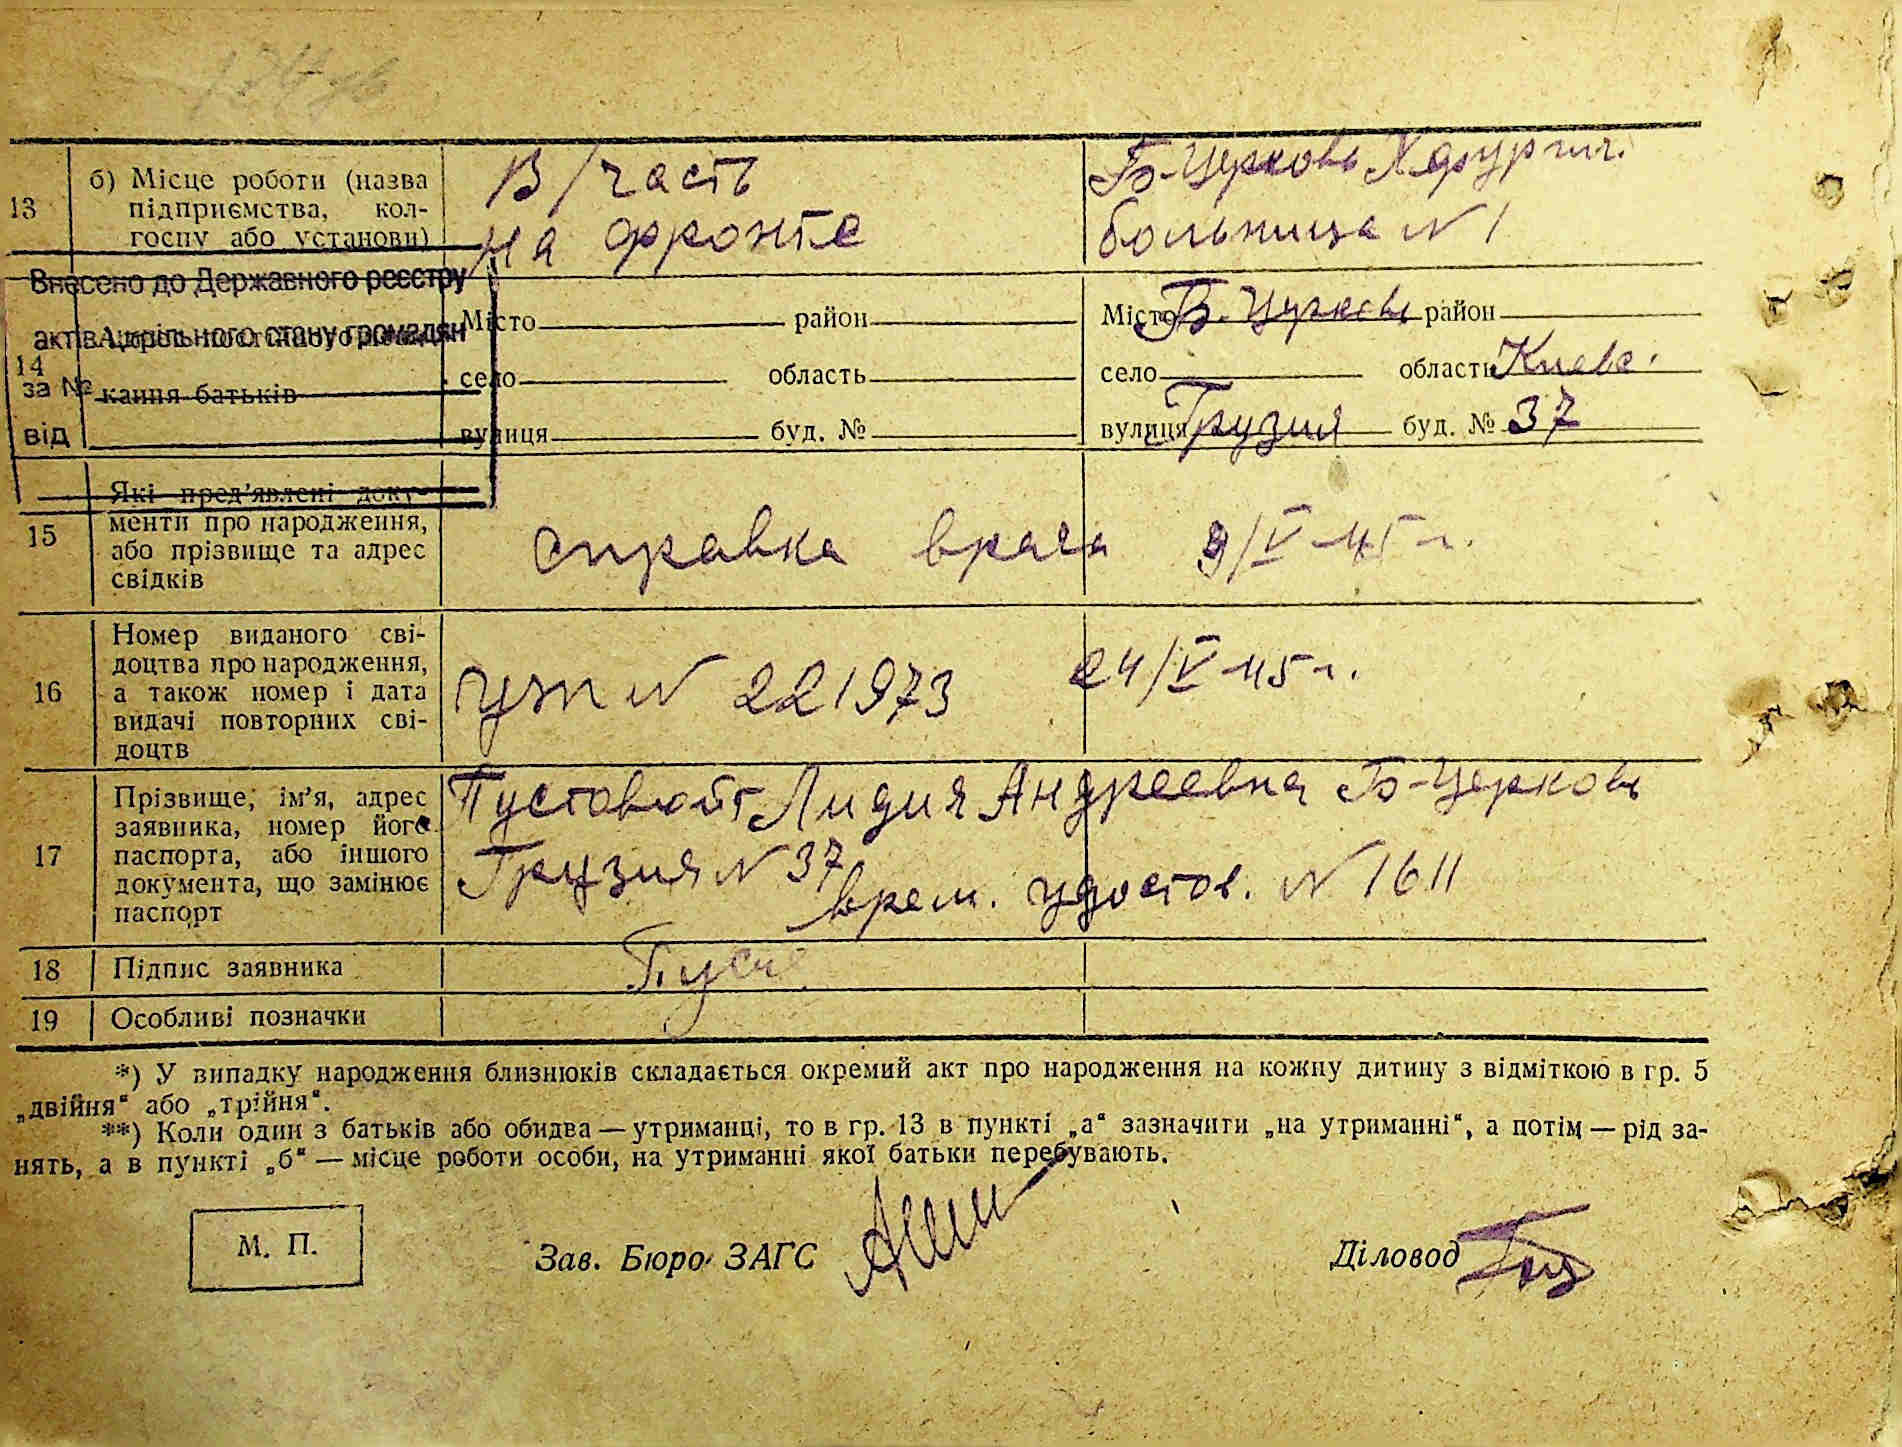 13
б) Місце роботи (назва
підприємства, кол-
госпу або установи)
В/часть
на фронте
Б-Церковь Хирургич.
больница N 1
Внесено до Державного реєстру
актів цивільного стану громадян
за №
від
14
кання батьків
Місто район
село область
вулиця буд. №
Місто Б. Церковь район
село область Киевс.
вулиця Грузия буд. № 37
15
Які пред'явлені доку-
менти про народження,
або прізвище та адрес
свідків
справка врача 9/V-45 г.
16
Номер виданого сві-
доцтва про народження,
а також номер і дата
видачі повторних сві-
доцтв
N 221973 24/V-45 г.
17
Прізвище, ім'я, адрес
заявника, номер його
паспорта, або іншого
документа, що замінює
паспорт
Пустовойт Лидия Андреевна Б-Церковь
Грузия N 37
врем. удостов. N 1611
18 Підпис заявника
Пуст
19 Особливі позначки
*) У випадку народження близнюків складається окремий акт про народження на кожну дитину з відміткою в гр. 5
„двійня“ або „трійня“.
**) Коли один з батьків або обидва — утриманці, то в гр. 13 в пункті „а“ зазначити „на утриманні“, а потім — рід за-
нять, а в пункті „б“ — місце роботи особи, на утриманні якої батьки перебувають.
М. П.
Зав. Бюро ЗАГС
Діловод